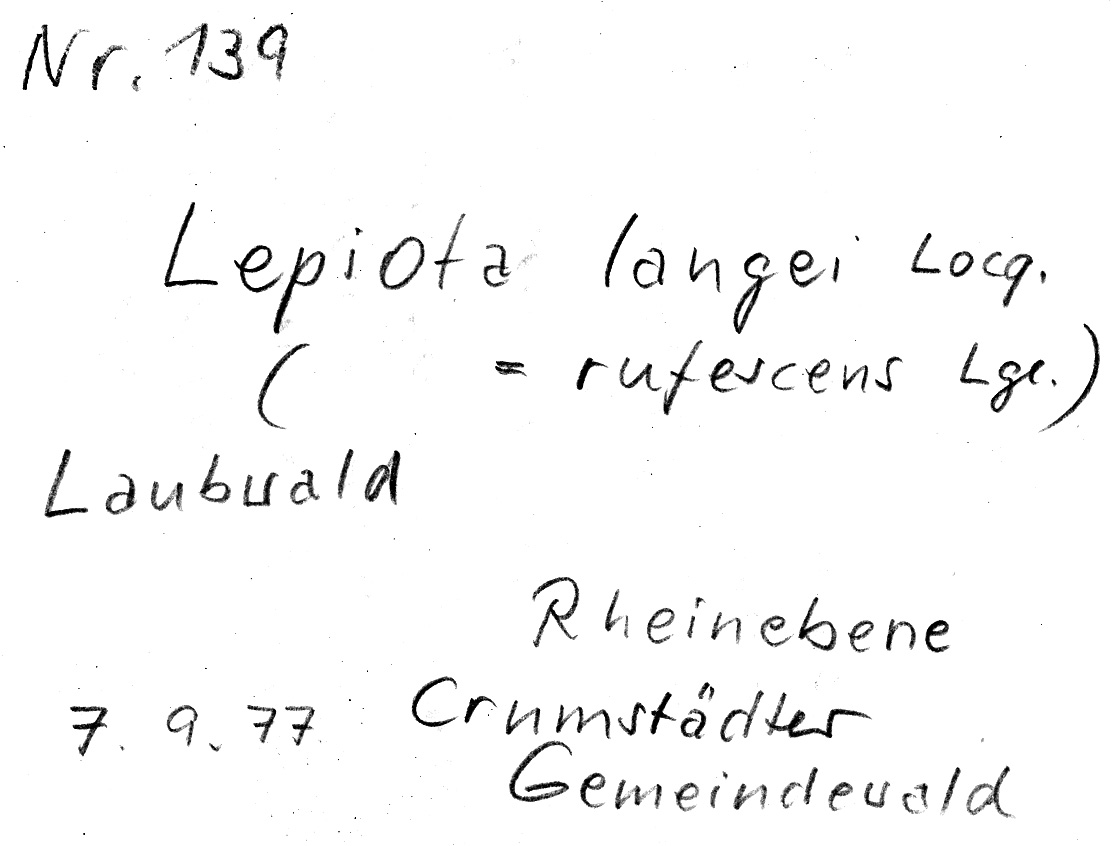 Nr. 139
Lepiota langei Locq.
( = rufescens Lge.)
Laubwald
Rheinebene
7. 9. 77 Crumstädter
Gemeindewald